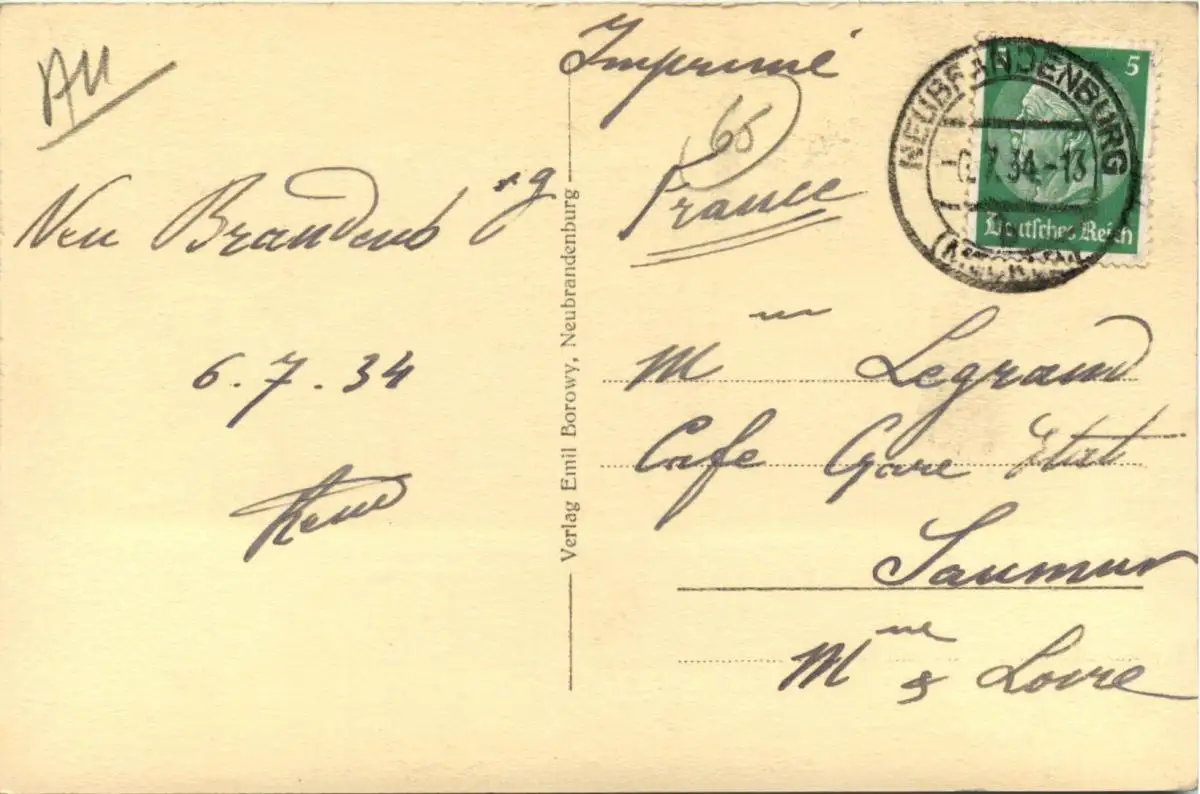 All
Neu Brandenb rg
6.7.34
Verlag Emil Borowy, Neubrandenburg
Imprimé
65
France
5 5
Deutsches Reich
NEUBRANDENBURG
-6.7.34.-13
(MECKLB)
M
Legrand
Cafe Gare Etat
Saumur
Mne & Loire